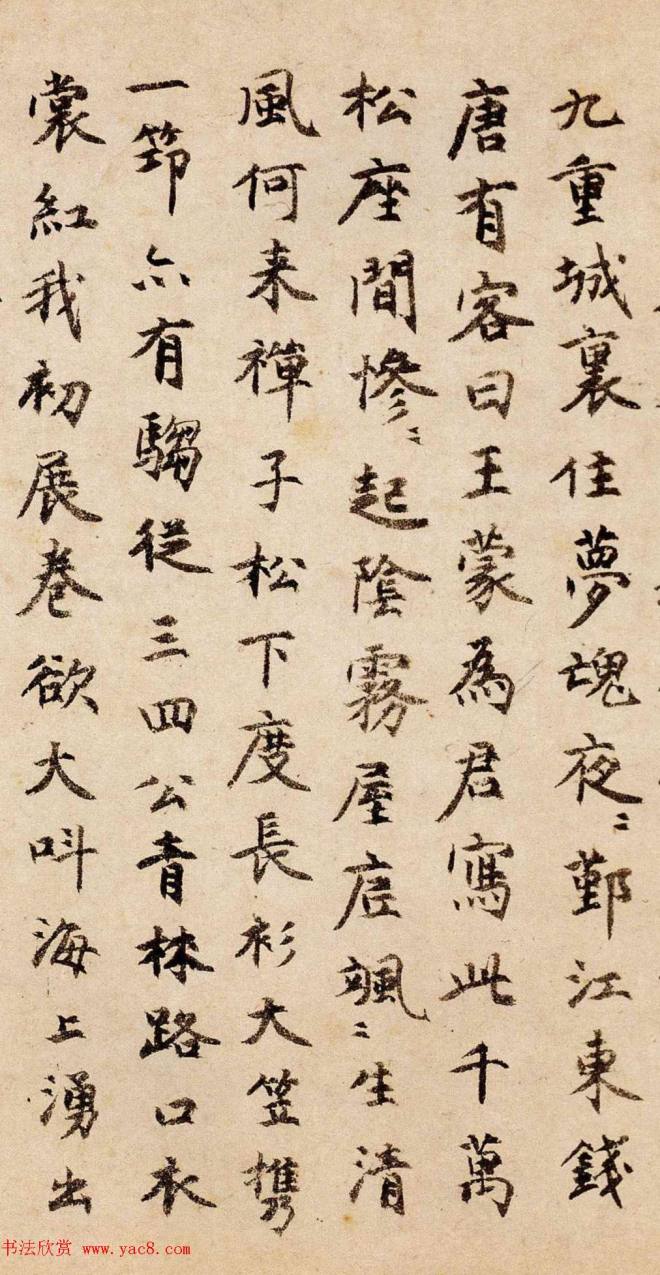 九重城裏住夢魂夜〻鄞江東錢
唐有客曰王蒙為君寫此千萬
松座間慘〻起陰霧屋底颯〻生清
風何来禅子松下度長衫大笠携
一笻亦有騶従三四公青林路口衣
裳紅我初展卷欲大叫海上湧出
书法欣赏 www.yac8.com